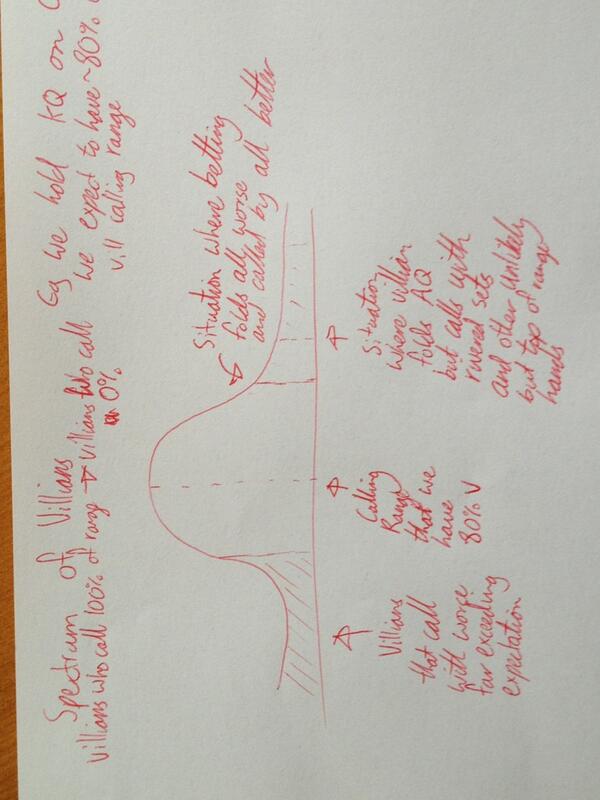 Spectrum of Villians
Villians who call 100% of range → Villians who call
0%
Eg we hold KQ on
we expect to have ~80% v
vill calling range
Situation where betting
folds all worse
and called by all better
Villians
that call
with worse
far exceeding
expectation
Calling
Range
that we
have
80% V
Situation
where villian
folds AQ
but calls with
rivered sets
and other unlikely
but top of range
hands